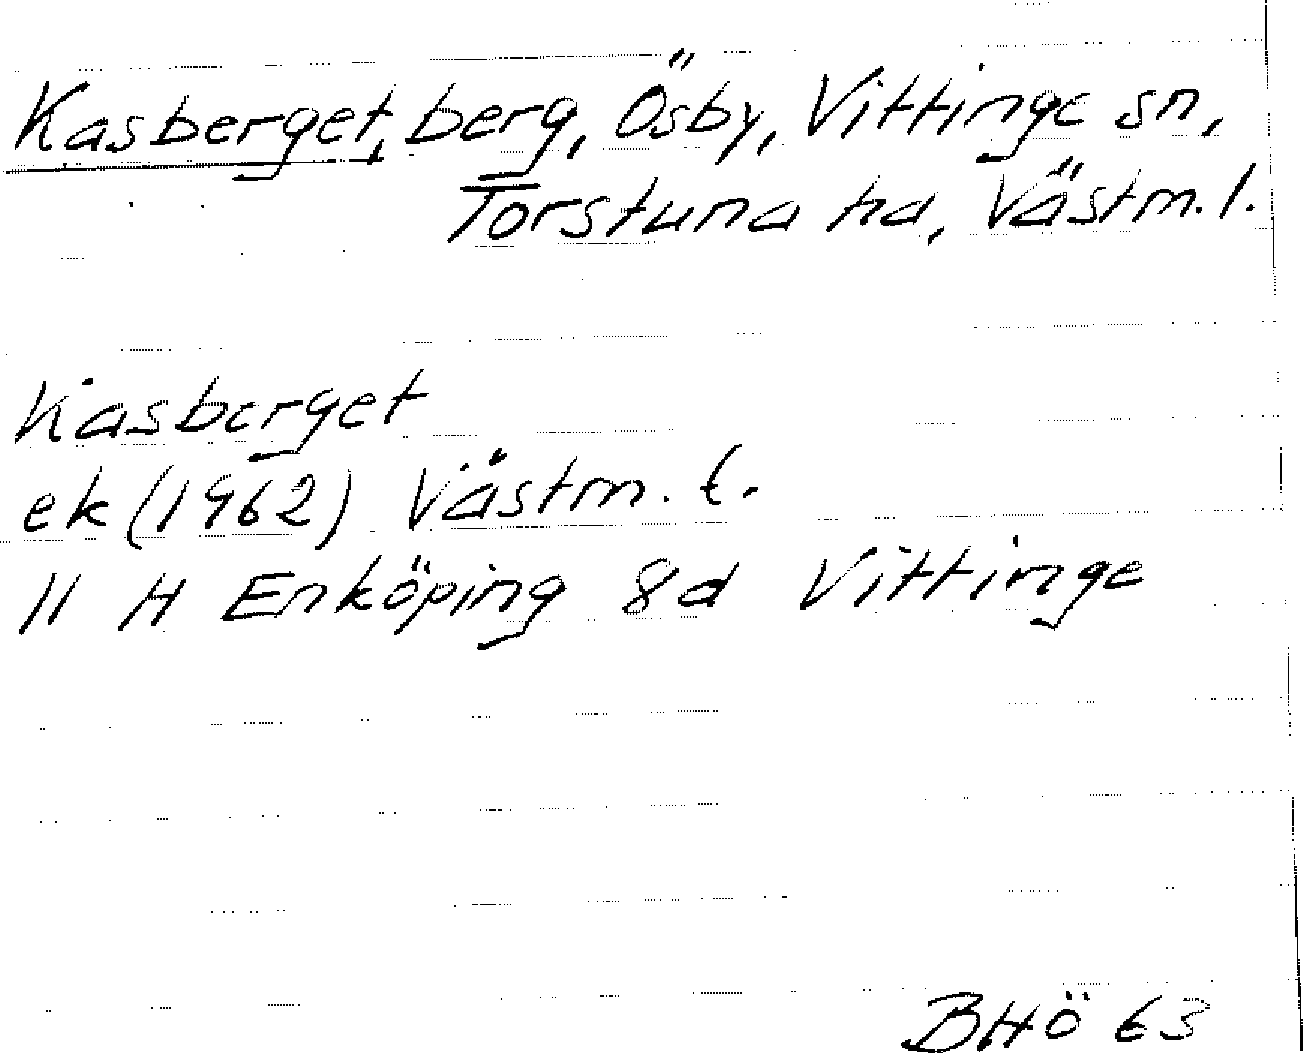 Kasberget, berg, Ösby, Vittinge sn,
Torstuna hd, Västm. l.
Kasberget
ek (1962) Västm. l.
11 H Enköping 8d Vittinge
BHÖ 63